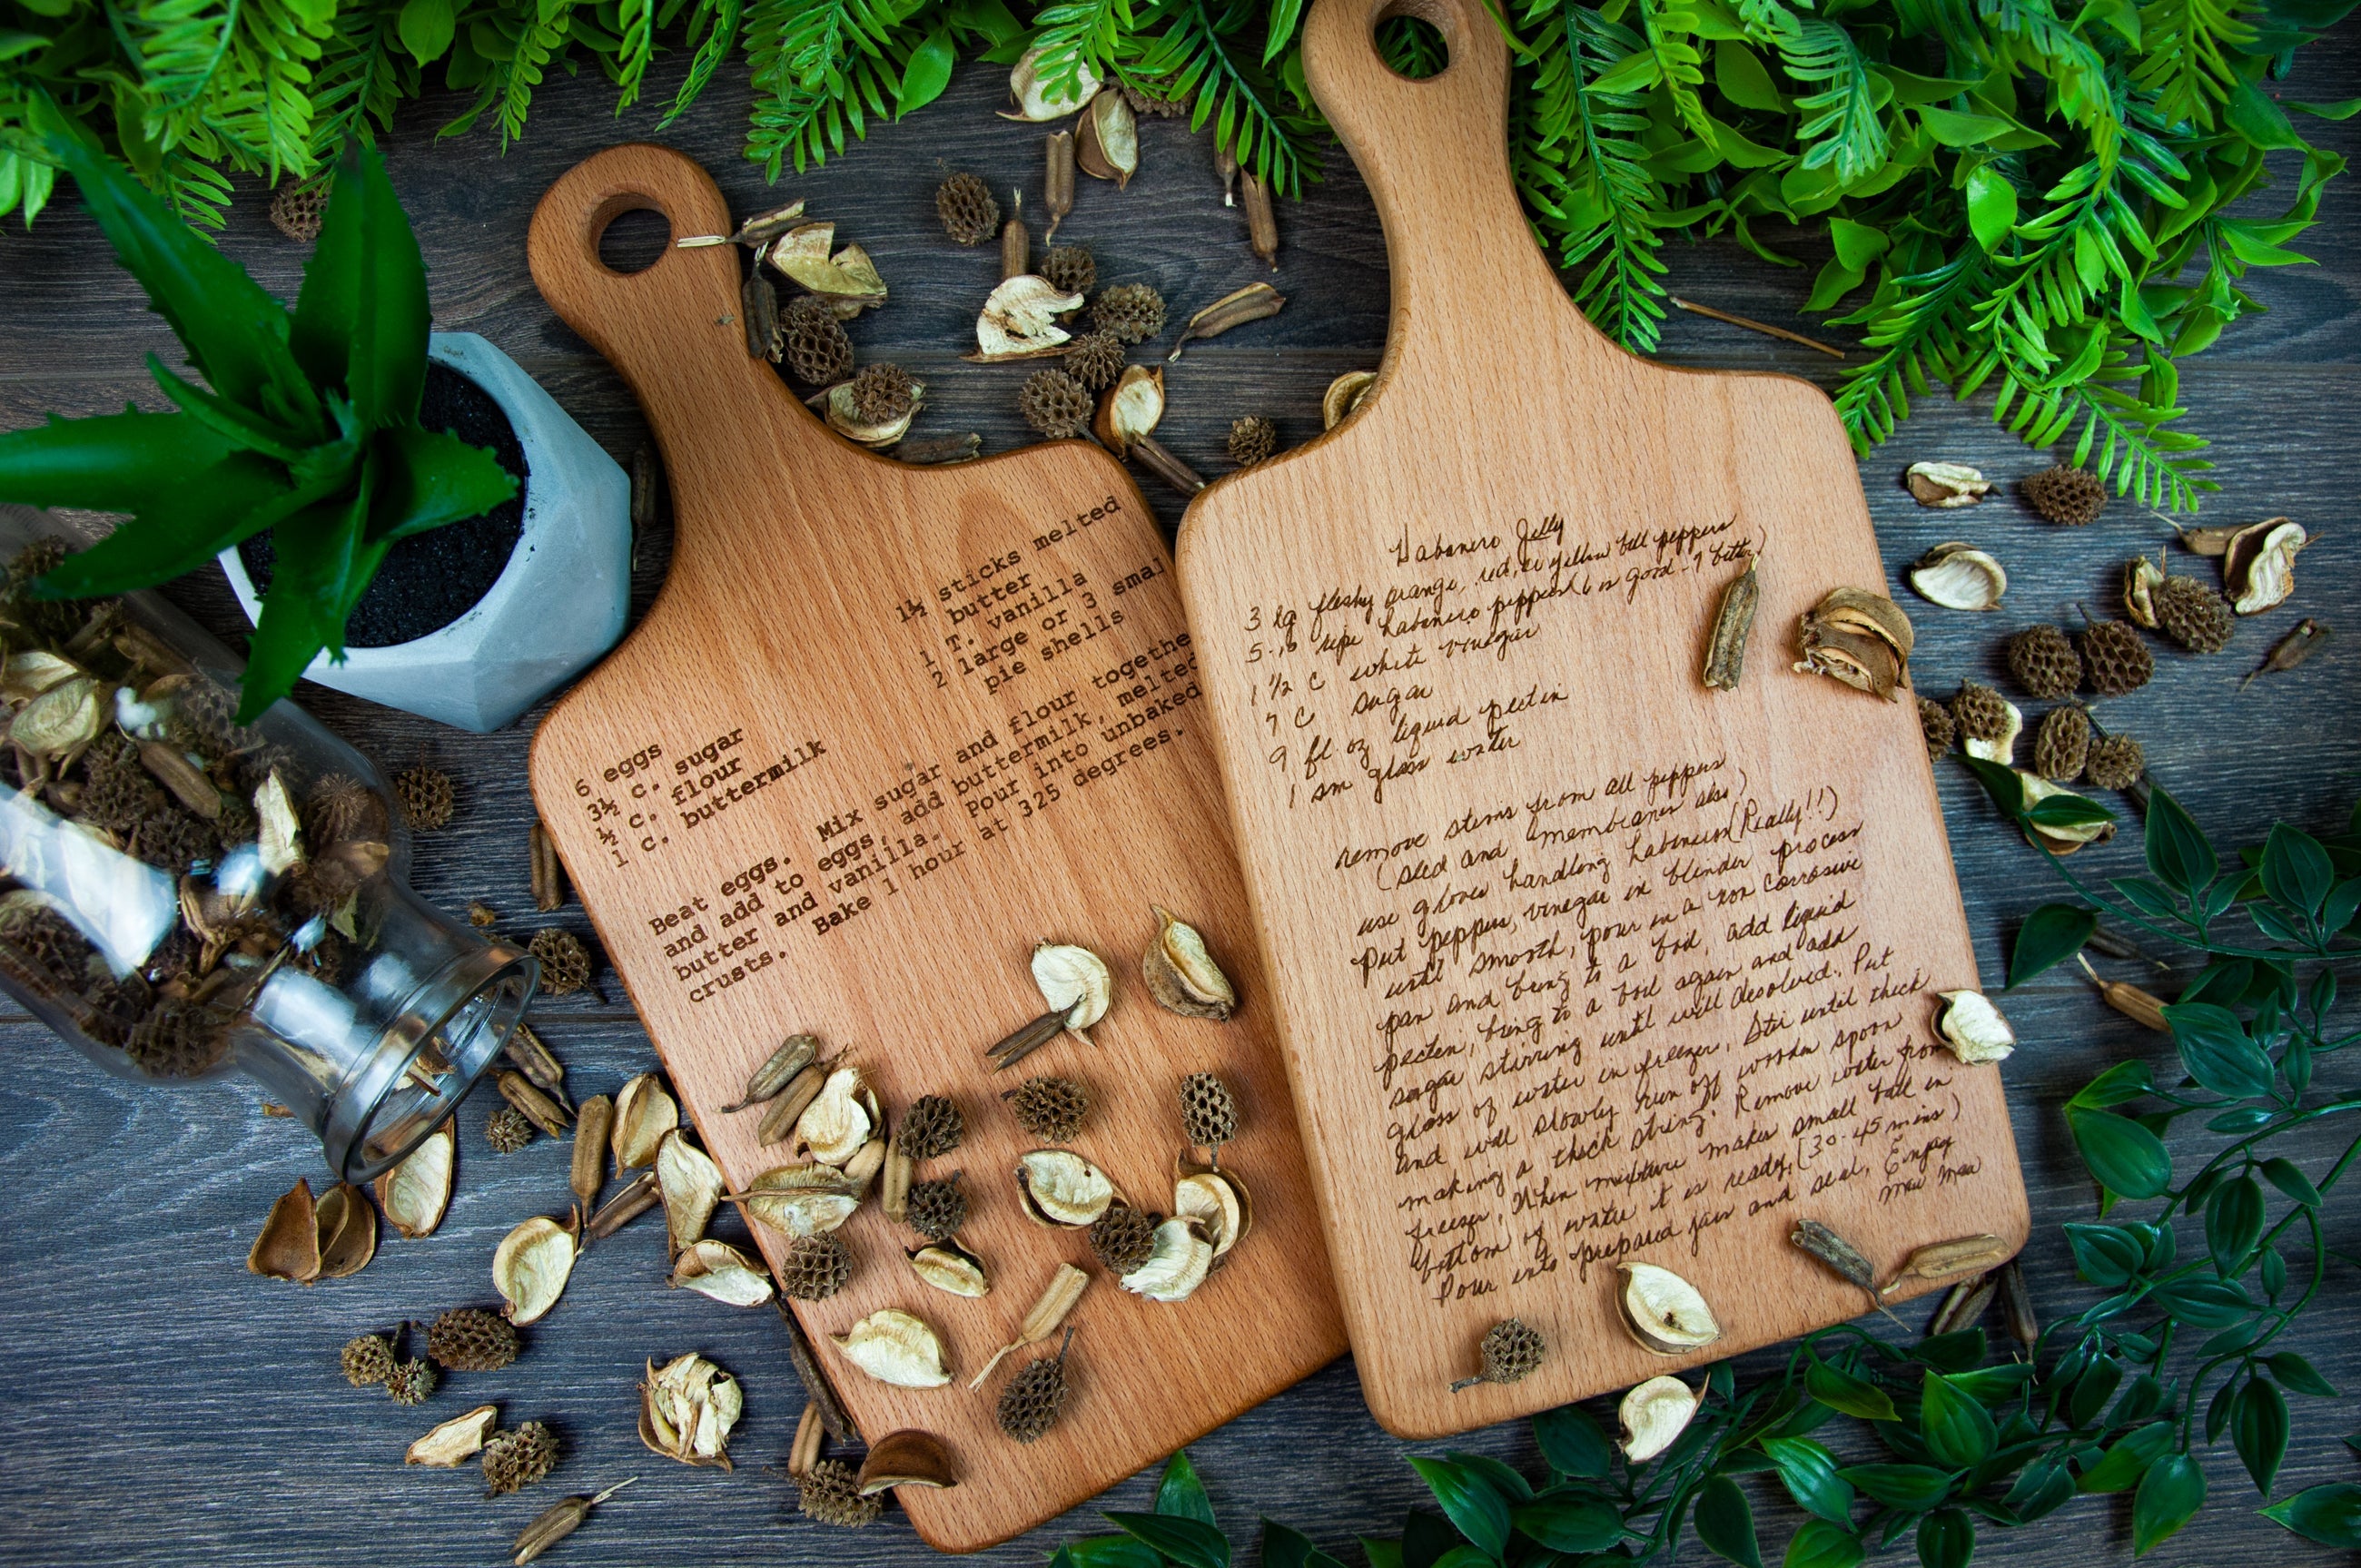 1½ sticks melted
butter
1 T. vanilla
2 large or 3 smal
pie shells
6 eggs
3½ c. sugar
½ c. flour
1 c. buttermilk
Beat eggs. Mix sugar and flour togethe
and add to eggs, add buttermilk, melted
butter and vanilla. Pour into unbaked
crusts. Bake 1 hour at 325 degrees.
Habanero Jelly
3 lg fleshy orange, red, or yellow bell peppers
5-10 ripe habanero peppers (6 is good - 7 better)
1 1/2 C white vinegar
7 C sugar
9 fl oz liquid pectin
1 sm glass water
remove stems from all peppers
(seed and membranes also)
use gloves handling habaneros (Really!!)
Put peppers, vinegar in blender process
until smooth, pour in a non corrosive
pan and bring to a boil, add liquid
pecten, bring to a boil again and add
sugar stirring until well desolved. Put
glass of water in freezer. Stir until thick
and will slowly run off wooden spoon
making a thick string. Remove water from
freezer, When mixture makes small ball in
bottom of water it is ready, (30-45 mins)
Pour into prepared jars and seal, Enjoy
Maw Maw